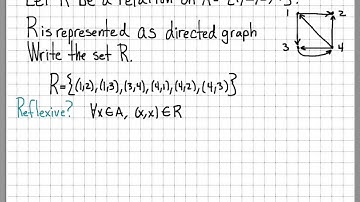 Let R be a relation on A=
R is represented as directed graph
Write the set R.
1 2
3 4
R={(1,2),(1,3),(3,4),(4,1),(4,2),(4,3)}
Reflexive? ∀x∈A, (x,x)∈R